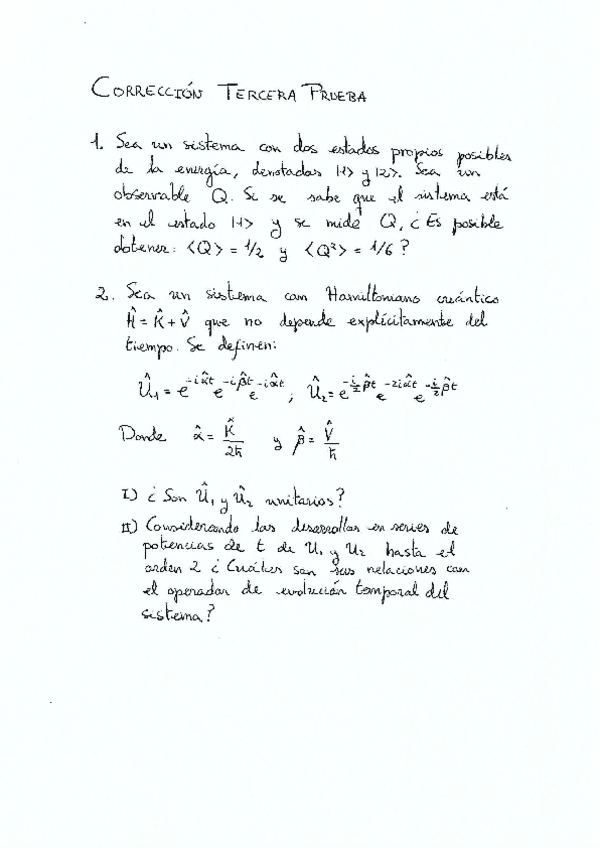 CORRECCIÓN TERCERA PRUEBA
1. Sea un sistema con dos estados propios posibles
de la energía, denotados |1> y |2>. Sea un
observable Q. Si se sabe que el sistema está
en el estado |1> y se mide Q, ¿Es posible
obtener: <Q> = 1/2 y <Q²> = 1/6?
2. Sea un sistema con Hamiltoniano cuántico
Ĥ = K̂ + V̂ que no depende explícitamente del
tiempo. Se definen:
Û₁ = e^{-iα̂t} e^{-iβ̂t} e^{-iα̂t} ; Û₂ = e^{-i/2 β̂t} e^{-2iα̂t} e^{-i/2 β̂t}
Donde α̂ = K̂/2ħ y β̂ = V̂/ħ
I) ¿Son Û₁ y Û₂ unitarios?
II) Considerando los desarrollos en series de
potencias de t de U₁ y U₂ hasta el
orden 2 ¿Cuáles son sus relaciones con
el operador de evolución temporal del
sistema?